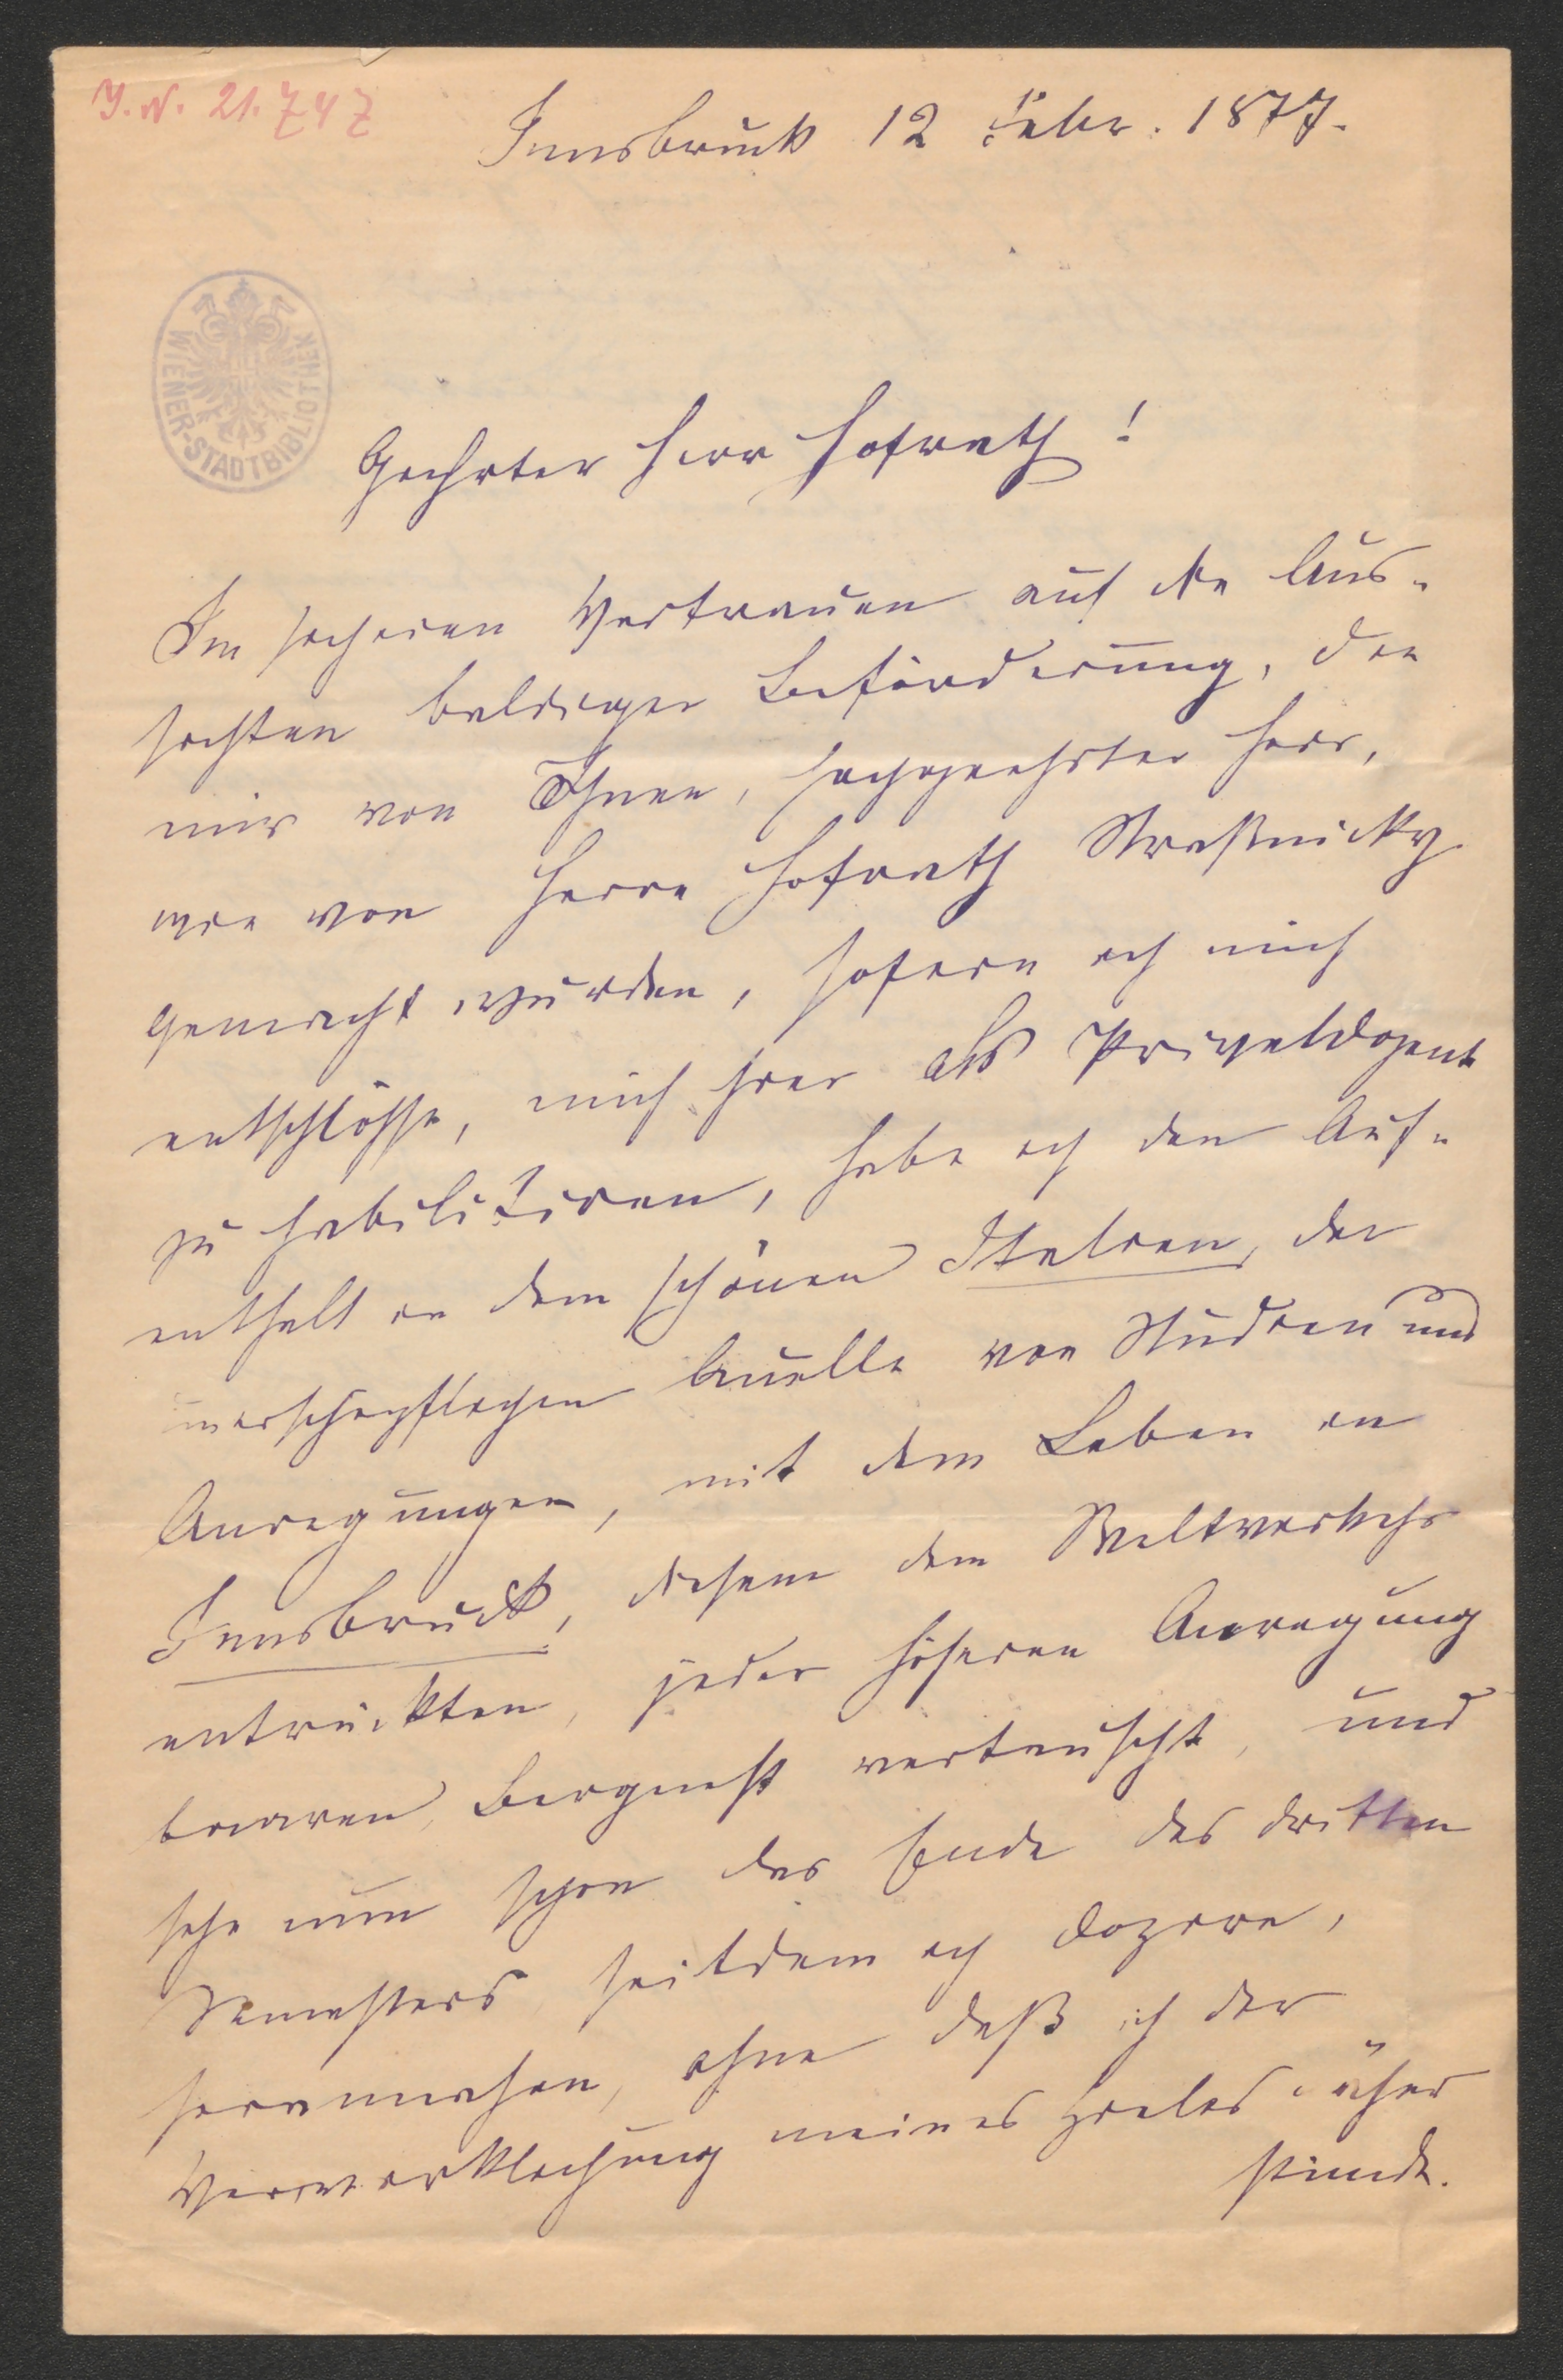 I. N. 21.747
Innsbruck 12 Febr. 1877.
WIENER-STADTBIBLIOTHEK
Geehrter Herr Hofrath!
Im sicheren Vertrauen auf die Aus-
sichten baldiger Beförderung, die
mir von Ihnen, hochgeehrter Herr,
wie von Herrn Hofrath Streßnicky
gemacht wurden, sofern ich mich
entschlösse, mich hier als Privatdozent
zu habilitiren, habe ich den Auf-
enthalt in dem schönen Italien, der
unerschöpflichen Quelle von Studien und
Anregungen, mit dem Leben in
Innsbruck, diesem dem Weltverkehr
entrückten, jeder höheren Anregung
baaren, Bergnest vertauscht, und
sehe nun schon das Ende des dritten
Semesters, seitdem ich dozire,
herannahen, ohne daß ich der
Verwirklichung meines Zieles näher
stünde.